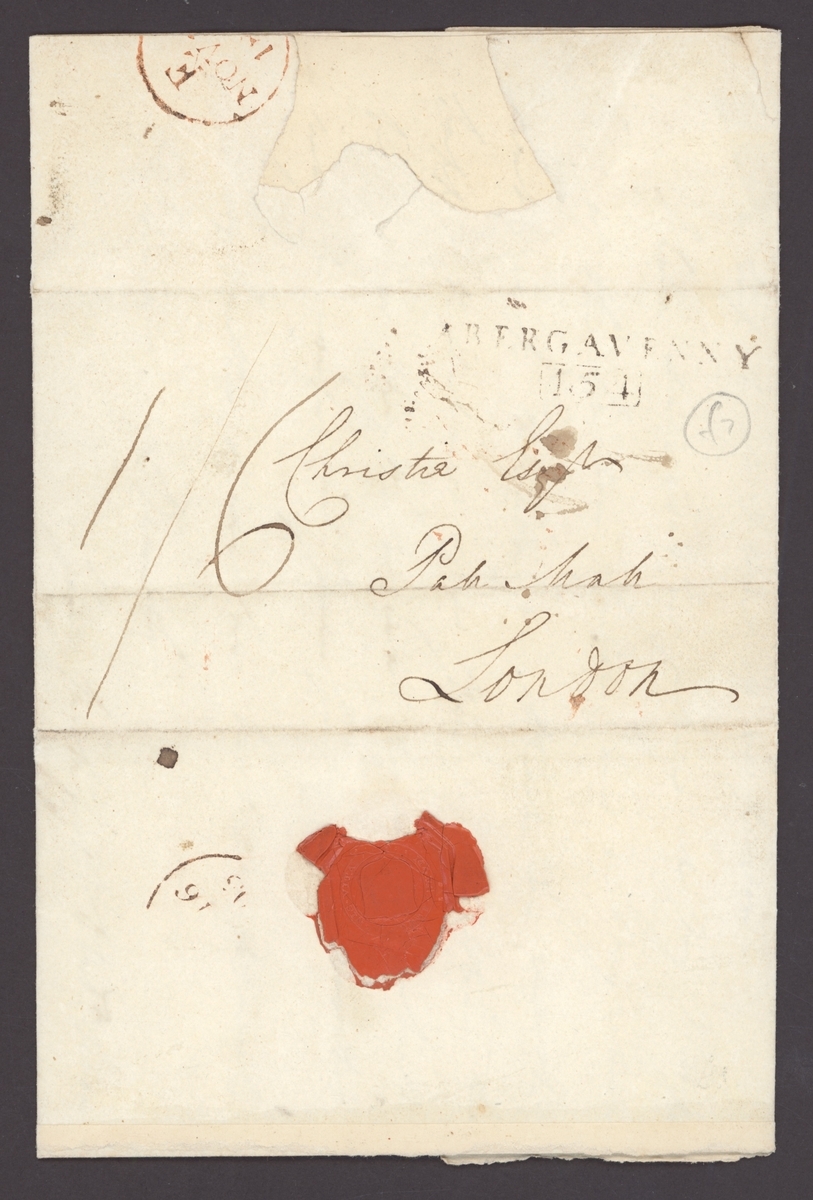 NOV
ABERGAVENNY
154
1/6
Christie Esqr
Pall Mall
London